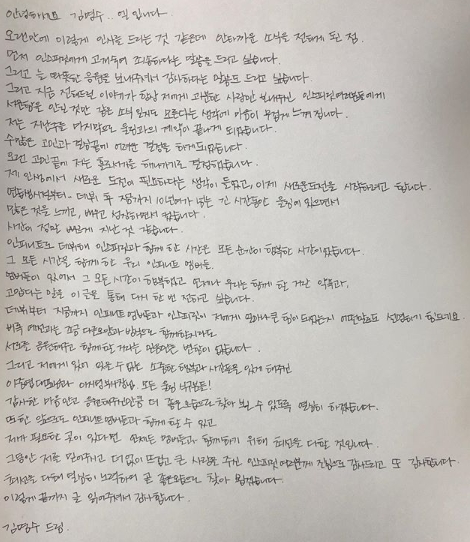 안녕하세요 김명수.. 엘입니다.
오랜만에 이렇게 인사를 드리는 것 같은데 안타까운 소식을 전하게 된 점.
먼저 인스피릿에게 고개숙여 죄송하다는 말씀을 드리고 싶습니다.
그리고 늘 따뜻한 응원을 보내주셔서 감사하다는 말씀도 드리고 싶습니다.
그리고 지금 전해드릴 이야기가 항상 저에게 과분한 사랑만 보내주신 인스피릿 여러분들에게
서운함을 안길 것만 같은 소식 일지도 모른다는 생각에 마음이 무겁게 느껴집니다.
저는 지난주를 마지막으로 울림과의 계약이 끝나게 되었습니다.
수많은 고민과 걱정끝에 어려운 결정을 하게되었습니다.
오랜 고민끝에 저는 홀로서기를 해나가기로 결정했습니다.
제 인생에서 새로운 도전이 필요하다는 생각이 들었고, 이제 새로운도전을 시작하려고 합니다.
연습생시절부터 - 데뷔 후 지금까지 10년여가 넘는 긴 시간동안 울림에 있으면서
많은 것을 느끼고, 배우고 성장하면서 왔습니다.
시간이 정말 빠르게 지난 것 같습니다.
인피니트로 데뷔해 인스피릿과 함께 한 시간은 모든 순간이 행복한 시간이었습니다.
그 모든 시간을 함께 한 우리 인피니트 멤버들.
멤버들이 있어서 그 모든 시간이 행복하였고 언제나 우리는 함께 할 거란 약속과,
고맙다는 말을 이 글을 통해 다시 한 번 전하고 싶습니다.
데뷔부터 지금까지 인피니트 멤버들과 인스피릿이 저에게 얼마나 큰 힘이 되었는지 어떤말로도 설명하기 힘드네요.
비록 예전과는 조금 다른모습과 방법으로 함께할지라도
서로를 응원해주고 함께 할 거라는 믿음만은 변함이 없습니다.
그리고 저에게 잊지 못할 수 없는 소중한 행복과 시간들을 있게 해주신
이중엽대표님과 모든 울림 식구분들!
감사한 마음이고 응원해주신만큼 더 좋은모습으로 찾아 뵐 수 있도록 열심히 하겠습니다.
또한 앞으로도 인피니트 멤버들과 함께 할 수 있고
제가 필요한 곳이 있다면 언제든 멤버들과 함께하기 위해 최선을 다할 것입니다.
그동안 저를 믿어주시고 더없이 뜨겁고 큰 사랑을 주신 인스피릿 여러분께 진심으로 감사드리고 또 감사합니다.
최선을 다해 열심히 노력하여 곧 좋은모습으로 찾아 뵙겠습니다.
이렇게 끝까지 글 읽어주셔서 감사합니다.
김명수 드림.